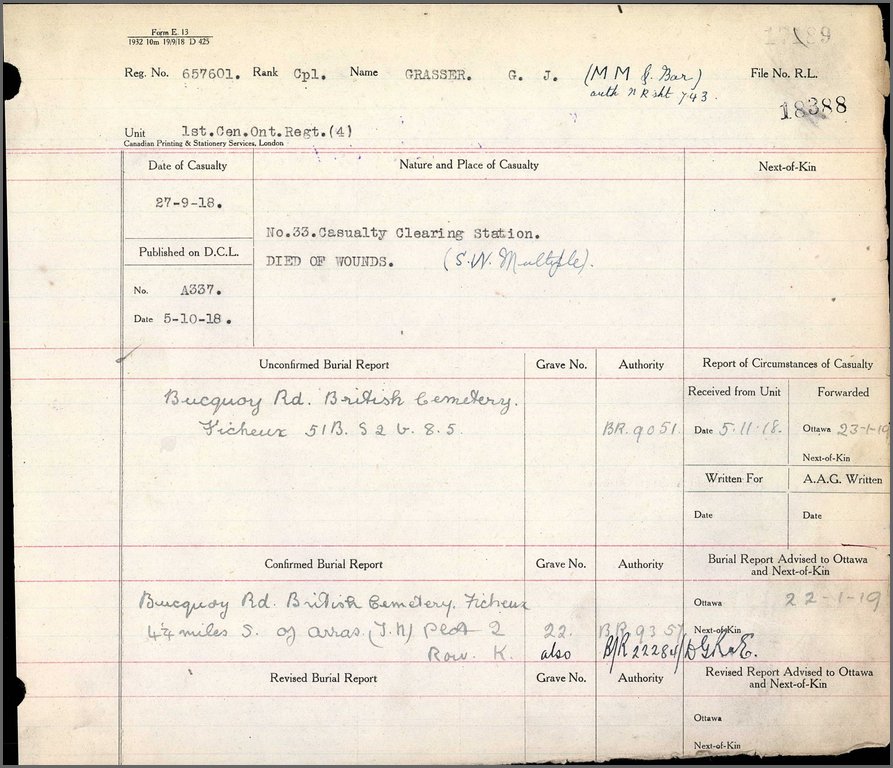 Form E. 13
1932 10m 19/9/18 D 425
Reg. No. 657601. Rank Cpl. Name GRASSER. G. J. (M M & Bar) File No. R.L.
auth N R sht 743.
18388
Unit 1st.Cen.Ont.Regt.(4)
Canadian Printing & Stationery Services, London
Date of Casualty Nature and Place of Casualty Next-of-Kin
27-9-18.
No.33.Casualty Clearing Station.
Published on D.C.L. DIED OF WOUNDS. (S.W. Multiple).
No. A337.
Date 5-10-18.
Unconfirmed Burial Report Grave No. Authority Report of Circumstances of Casualty
Received from Unit Forwarded
Bucquoy Rd. British Cemetery.
Ficheux 51B. S 2 b. 8.5. BR.9051. Date 5.11.18. Ottawa 23-1-19
Next-of-Kin
Written For A.A.G. Written
Date Date
Confirmed Burial Report Grave No. Authority Burial Report Advised to Ottawa
and Next-of-Kin
Bucquoy Rd. British Cemetery. Ficheux Ottawa 22-1-19
4¼ miles S. of Arras. (J.N) Plot 2 22. BR 9357 Next-of-Kin
Row. K. also B/R 22284/DGR&E.
Revised Burial Report Grave No. Authority Revised Report Advised to Ottawa
and Next-of-Kin
Ottawa
Next-of-Kin